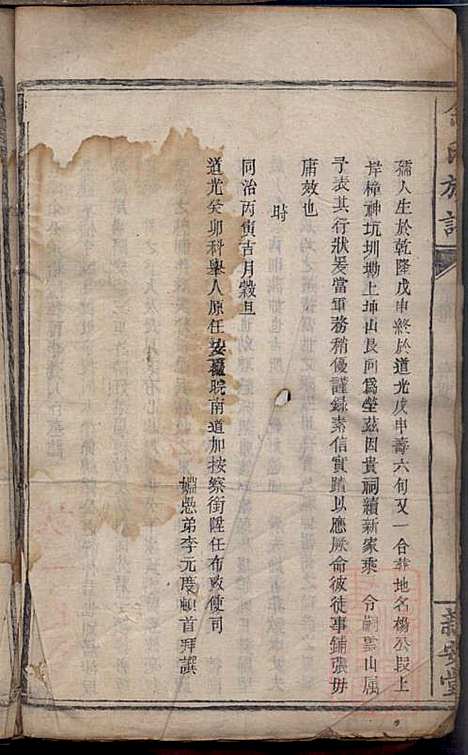 孺人生於乾隆戊申終於道光戊申壽六旬又一合葬地名楊公段上
岸樟神坑圳塝上坤山艮向爲塋茲因貴祠續新家乘 令嗣雲山属
予表其行狀爰當軍務稍優謹錄素信實蹟以應厥命彼徒事鋪張毋
庸效也
时
同治丙寅吉月穀旦
道光癸卯科舉人原任安徽皖南道加按察銜陞任布政使司
姻愚弟李元度頓首拜譔
氏族譜
新安堂